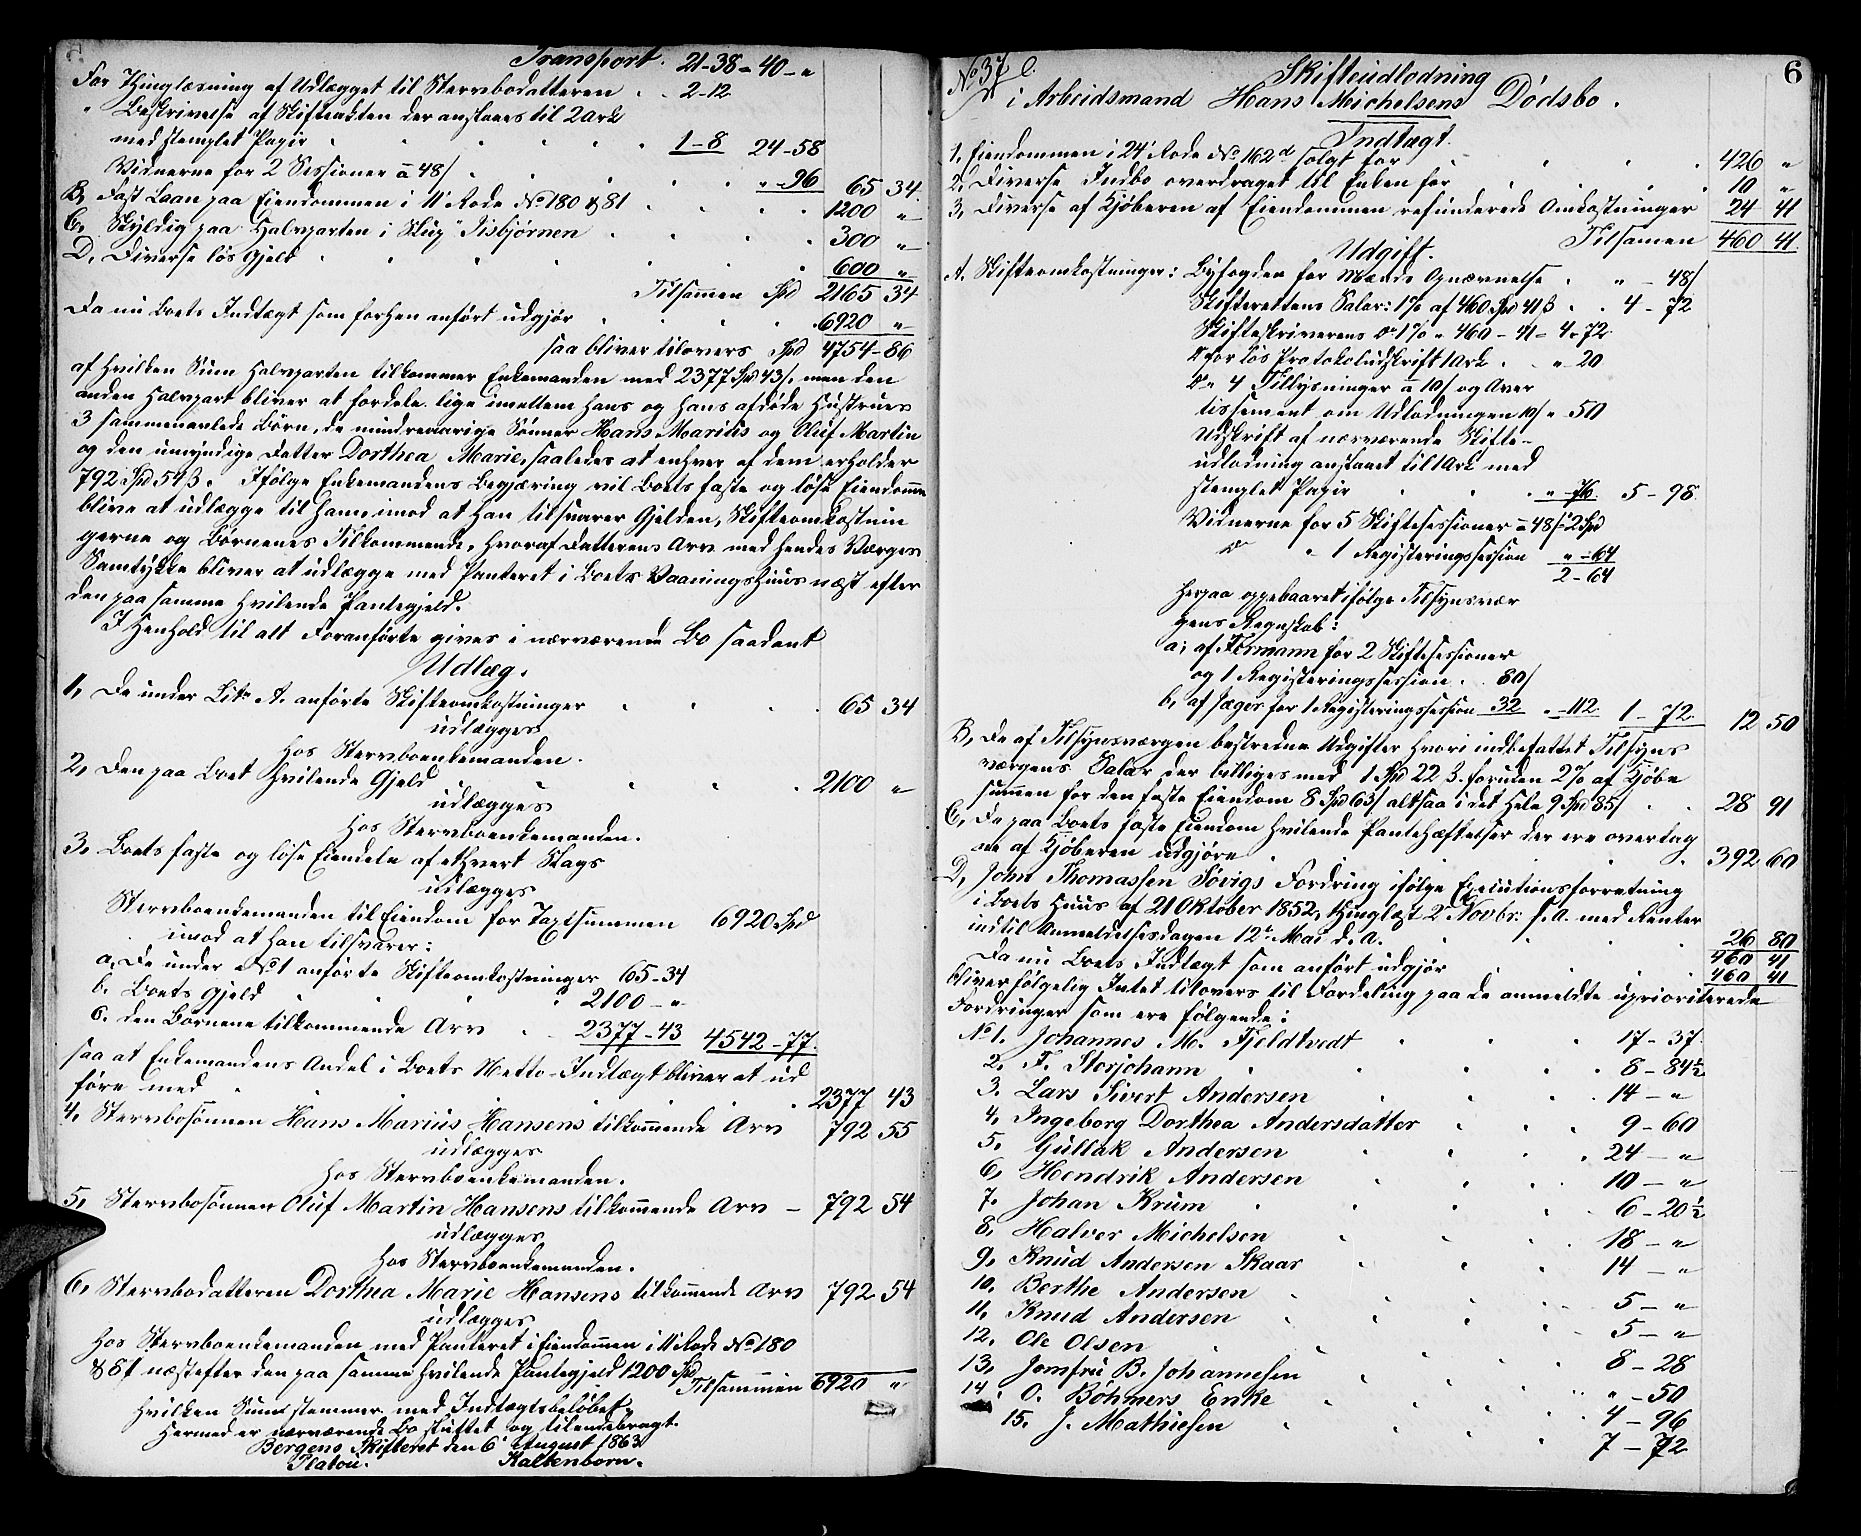 Transport. 21-38 - 40-"
For Thinglæsning af Udlægget til Stervbodatteren . . 2-12
" Beskrivelse af Skifteakten der ansloaes til 2 Ark
med stemplet Papir . . . . . . 1-8 24-58
Vidnerne for 2 Sessioner à 48/ . . . . . "-96 65 34.
B, Fast Laan paa Eiendommen i 11' Rode No 180 & 81 . . . . 1200 "
C. Skyldig paa Halvparten i Skup "Iisbjørnen . . . . 300 "
D, Diverse løs Gjeld . . . . . . . 600 "
Tilsammen Spd 2165 34
Da nu Boets Indtægt som forhen anført udgjør . . . . 6920 "
saa bliver tilovers Spd 4754-86
af hvilken Sum Halvparten tilkommer Enkemanden med 2377 Spd 43/. men den
anden Halvpart bliver at fordele lige imellem hans og hans afdøde Hustrues
3 sammenavlede Børn, de mindreaarige Sønner Hans Marius og Oluf Martin
og den umyndige Datter Dorthea Marie, saaledes at enhver af dem erholder
792 Spd 54 ß. Ifølge Enkemandens Begjæring vil Boets faste og løse Eiendomme
blive at udlægge til ham imod at han tilsvarer Gjelden, Skifteomkostnin
gerne og Børnenes Tilkommende, hvoraf Datterens Arv med hendes Værges
Samtykke bliver at udlægge med Panteret i Boets Vaaningshuus næst efter
den paa samme hvilende Pantegjeld.
I Henhold til alt Foranførte gives i nærværende Bo saadant
Udlæg.
1, De under Litr A. anførte Skifteomkostninger . . . . 65 34
udlægges
hos Stervboenkemanden.
2, Den paa Boet hvilende Gjeld . . . . 2100 "
udlægges
hos Stervboenkemanden.
3, Boets faste og løse Eiendele af ethvert Slags
udlægges
Stervboenkemanden til Eiendom for Taxtsummen 6920 Spd
imod at han tilsvarer:
a, De under No 1 anførte Skifteomkostninger 65-34
b. Boets Gjeld . . . . 2100-"
c. den Børnene tilkommende Arv . 2377-43 4542-77.
saa at Enkemandens Andel i Boets Netto-Indtægt bliver at ud
føre med . . . . . . . 2377 43
4, Stervbosønnen Hans Marius Hansens tilkommende Arv 792 55
udlægges
hos Stervboenkemanden.
5, Stervbosønnen Oluf Martin Hansens tilkommende Arv - 792 54
udlægges
hos Stervboenkemanden.
6, Stervbodatteren Dorthea Marie Hansens tilkommende Arv 792 54
udlægges
hos Stervboenkemanden med Panteret i Eiendommen i 11' Rode No 180
& 81 næstefter den paa samme hvilende Pantegjeld 1200 Spd
Tilsammen 6920 "
Hvilken Sum stemmer med Indtægtsbeløbet.
Hermed er nærværende Bo sluttet og tilendebragt.
Bergens Skifteret den 6' August 1863
Platou. Kaltenborn.
6
No 37 c. Skifteudlodning
i Arbeidsmand Hans Michelsens Dødsbo.
Indtægt.
1, Eiendommen i 24' Rode No 162 d solgt for . . . . 426 "
2, Diverse Indbo overdraget til Enken for . . . . 10 "
3, Diverse af Kjøberen af Eiendommen refunderede Omkostninger 24 41
Tilsamen 460 41.
Udgift.
A. Skifteomkostninger: Byfogden for Mænds Opnævnelse . "-48/
Skifterettens Salær: 1% af 460 Spd 41 ß . . 4-72
Skifteskriverens do 1% " 460-41 = 4-72.
do for løs Protokoludskrift 1 Ark . . "-20
do " 4 Tillysninger à 10/ og Aver
tissement om Udlodningen 10/ " 50
Udskrift af nærværende Skifte-
udlodning anslaaet til 1 Ark med
stemplet Papir . . . "-76. 5-98.
Vidnerne for 5 Skiftesessioner à 48/ 2 Spd
do " 1 Registeringssession "-64
2-64
herpaa oppebaaret ifølge Tilsynsvær
gens Regnskab:
a, af Formann for 2 Skiftesessioner
og 1 Registeringssession . . 80/
b, af Jæger for 1 Registeringssession 32 "-112. 1-72. 12 50
B, De af Tilsynsværgen bestredne Udgifter hvori indbefattet Tilsyns
værgens Salær der billiges med 1 Spd 22 ß. foruden 2% af Kjøbe
summen for den faste Eiendom 8 Spd 63/ altsaa i det Hele 9 Spd 85/ . . 28 91
C, De paa Boets faste Eiendom hvilende Pantehæftelser der ere overtag
ne af Kjøberen udgjøre . . . . . 392 60
D, John Thomassen Søvigs Fordring ifølge Executionsforretning
i Boets Huus af 21 Oktober 1852, thinglæst 2 Novbr: s. A. med Renter
indtil Anmeldelsesdagen 12te Mai d. A. . . . . 26 80
460 41
Da nu Boets Indtægt som anført udgjør . . . . 460 41
bliver følgelig Intet tilovers til Fordeling paa de anmeldte uprioriterede
Fordringer som ere følgende:
No 1. Johannes M. Fjeldtvedt . . . 17-37.
2. F. Storjohann . . . . 8-84½
3. Lars Sivert Andersen . . . 14-"
4, Ingeborg Dorthea Andersdatter . . . 9-60
5, Gullak Andersen . . . 24-"
6, Hendrik Andersen . . . 10-"
7. Johan Krum . . . . 6-20½
8, Halver Michelsen . . . 18-"
9, Knud Andersen Skaar . . . 14-"
10. Berthe Andersen . . . 5-"
11, Knud Andersen . . . 5-"
12. Ole Olsen . . . 8-28
13, Jomfru B. Johannesen . . . "-50
14. O. Böhmers Enke . . . 4-96
15. J. Mathiesen . . . 7-72